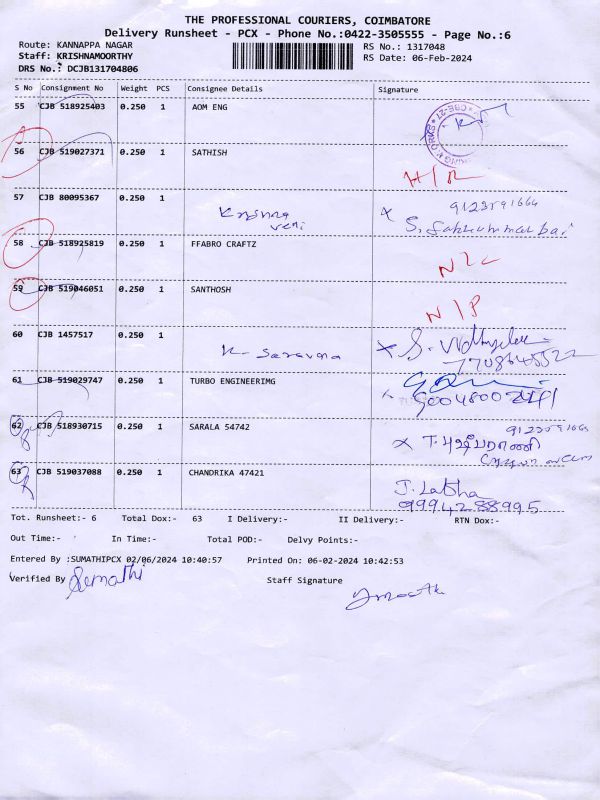 THE PROFESSIONAL COURIERS, COIMBATORE
Delivery Runsheet - PCX - Phone No.:0422-3505555 - Page No.:6
Route: KANNAPPA NAGAR RS No.: 1317048
Staff: KRISHNAMOORTHY RS Date: 06-Feb-2024
DRS No.: DCJB131704806
S No Consignment No Weight PCS Consignee Details Signature
55 CJB 518925403 0.250 1 AOM ENG
56 CJB 519027371 0.250 1 SATHISH
57 CJB 80095367 0.250 1
Krishna
veni
9123591664
58 CJB 518925819 0.250 1 FFABRO CRAFTZ
59 CJB 519046051 0.250 1 SANTHOSH
N/P
60 CJB 1457517 0.250 1
K. Saravana
7708645522
61 CJB 519029747 0.250 1 TURBO ENGINEERIMG
62 CJB 518930715 0.250 1 SARALA 54742
63 CJB 519037088 0.250 1 CHANDRIKA 47421
J. Latha
9994288995
Tot. Runsheet:- 6 Total Dox:- 63 I Delivery:- II Delivery:- RTN Dox:-
Out Time:- In Time:- Total POD:- Delvy Points:-
Entered By :SUMATHIPCX 02/06/2024 10:40:57 Printed On: 06-02-2024 10:42:53
Verified By Sumathi Staff Signature